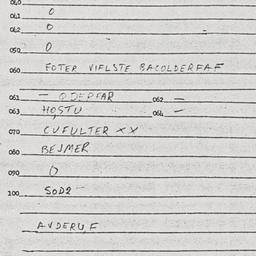 040
041 0
042 0
050 0
060 FOTER VIFLSTE BACOLDERFAF
061 — ODEPFAR 062 —
063 HOSTU 064 —
070 CUFULTER XX
080 BEJMER
090 0
100 SOD2
AVDERUF